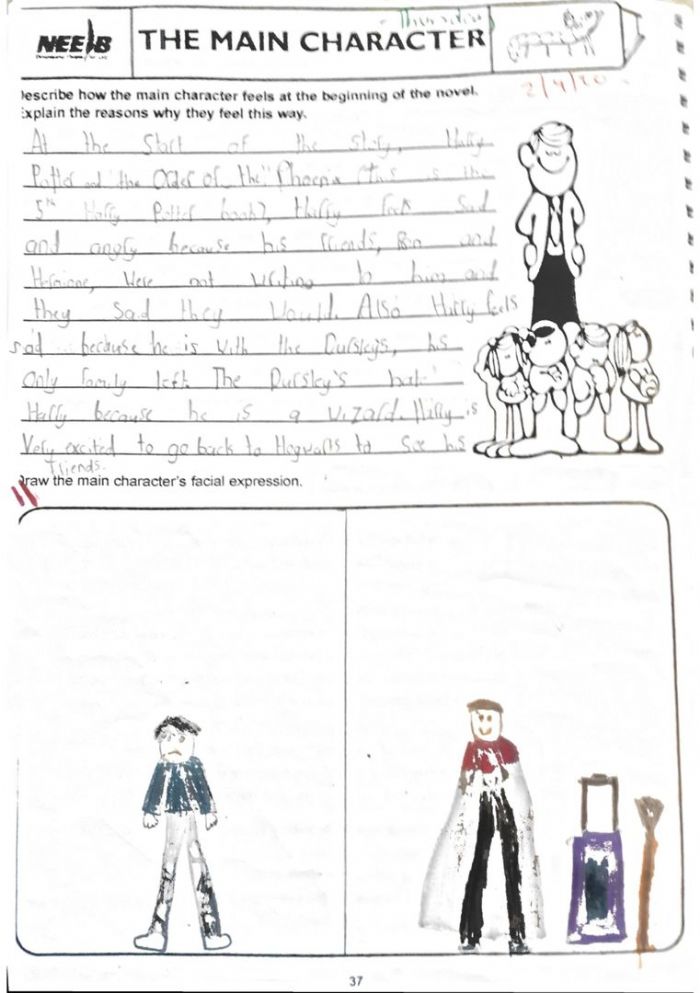 Thursday
NEELB
THE MAIN CHARACTER
2/4/20
Describe how the main character feels at the beginning of the novel.
Explain the reasons why they feel this way.
At the start of the story, Harry
Potter and the Order of the Phoenix (this is the
5th Harry Potter book), Harry feels sad
and angry because his friends, Ron and
Hermione, were not writing to him and
they said they would. Also Harry feels
sad because he is with the Dursleys, his
only family left. The Dursley's hate
Harry because he is a wizard. Harry is
very excited to go back to Hogwarts to see his
friends.
Draw the main character's facial expression.
37